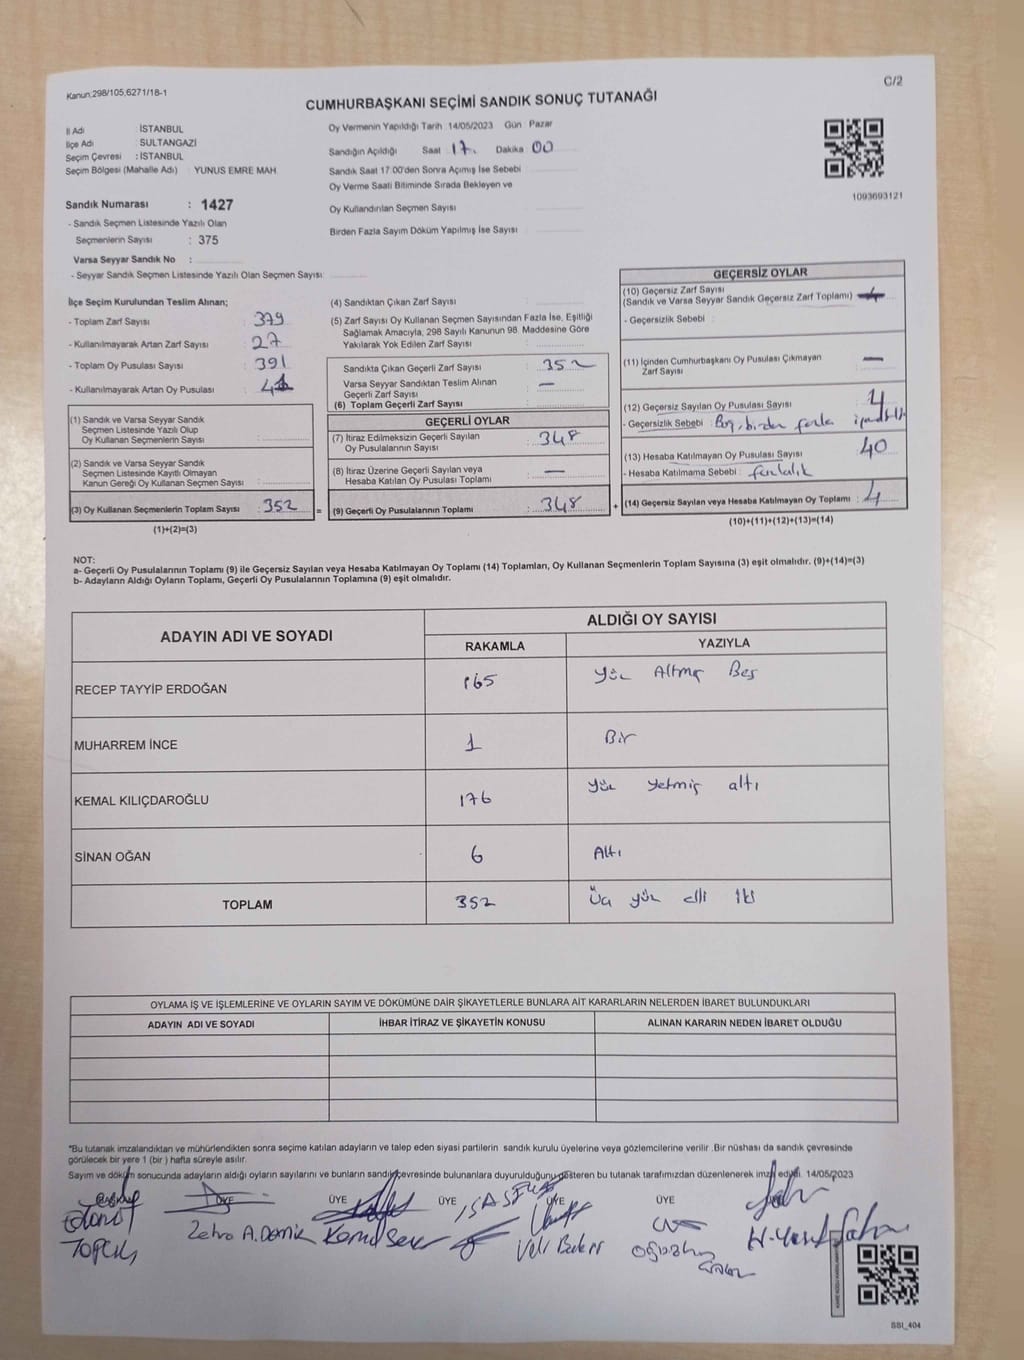 Kanun,298/105,6271/18-1
C/2
CUMHURBAŞKANI SEÇİMİ SANDIK SONUÇ TUTANAĞI
İl Adı : İSTANBUL
İlçe Adı : SULTANGAZİ
Seçim Çevresi : İSTANBUL
Seçim Bölgesi (Mahalle Adı) : YUNUS EMRE MAH.
Sandık Numarası : 1427
- Sandık Seçmen Listesinde Yazılı Olan
Seçmenlerin Sayısı : 375
Varsa Seyyar Sandık No :
- Seyyar Sandık Seçmen Listesinde Yazılı Olan Seçmen Sayısı:
Oy Vermenin Yapıldığı Tarih 14/05/2023 Gün Pazar
Sandığın Açıldığı Saat 17. Dakika 00
Sandık Saat 17.00'den Sonra Açımış İse Sebebi
Oy Verme Saati Bitiminde Sırada Bekleyen ve
Oy Kullandırılan Seçmen Sayısı
Birden Fazla Sayım Döküm Yapılmış İse Sayısı
1093693121
İlçe Seçim Kurulundan Teslim Alınan;
- Toplam Zarf Sayısı : 379
- Kullanılmayarak Artan Zarf Sayısı : 27
- Toplam Oy Pusulası Sayısı : 391
- Kullanılmayarak Artan Oy Pusulası :
(1) Sandık ve Varsa Seyyar Sandık
Seçmen Listesinde Yazılı Olup
Oy Kullanan Seçmenlerin Sayısı :
(2) Sandık ve Varsa Seyyar Sandık
Seçmen Listesinde Kayıtlı Olmayan
Kanun Gereği Oy Kullanan Seçmen Sayısı :
(3) Oy Kullanan Seçmenlerin Toplam Sayısı : 352
(1)+(2)=(3)
(4) Sandıktan Çıkan Zarf Sayısı :
(5) Zarf Sayısı Oy Kullanan Seçmen Sayısından Fazla İse, Eşitliği
Sağlamak Amacıyla, 298 Sayılı Kanunun 98. Maddesine Göre
Yakılarak Yok Edilen Zarf Sayısı :
Sandıkta Çıkan Geçerli Zarf Sayısı : 352
Varsa Seyyar Sandıktan Teslim Alınan
Geçerli Zarf Sayısı : —
(6) Toplam Geçerli Zarf Sayısı :
GEÇERLİ OYLAR
(7) İtiraz Edilmeksizin Geçerli Sayılan
Oy Pusulalarının Sayısı : 348
(8) İtiraz Üzerine Geçerli Sayılan veya
Hesaba Katılan Oy Pusulası Toplamı : —
= (9) Geçerli Oy Pusulalarının Toplamı : 348 +
GEÇERSİZ OYLAR
(10) Geçersiz Zarf Sayısı
(Sandık ve Varsa Seyyar Sandık Geçersiz Zarf Toplamı)
- Geçersizlik Sebebi :
(11) İçinden Cumhurbaşkanı Oy Pusulası Çıkmayan
Zarf Sayısı : —
(12) Geçersiz Sayılan Oy Pusulası Sayısı : 4
- Geçersizlik Sebebi : Boş, birden fazla
(13) Hesaba Katılmayan Oy Pusulası Sayısı : 40
- Hesaba Katılmama Sebebi : fazlalık
(14) Geçersiz Sayılan veya Hesaba Katılmayan Oy Toplamı : 4
(10)+(11)+(12)+(13)=(14)
NOT:
a- Geçerli Oy Pusulalarının Toplamı (9) ile Geçersiz Sayılan veya Hesaba Katılmayan Oy Toplamı (14) Toplamları, Oy Kullanan Seçmenlerin Toplam Sayısına (3) eşit olmalıdır. (9)+(14)=(3)
b- Adayların Aldığı Oyların Toplamı, Geçerli Oy Pusulalarının Toplamına (9) eşit olmalıdır.
ADAYIN ADI VE SOYADI
ALDIĞI OY SAYISI
RAKAMLA YAZIYLA
RECEP TAYYİP ERDOĞAN 165 Yüz Altmış Beş
MUHARREM İNCE 1 Bir
KEMAL KILIÇDAROĞLU 176 Yüz yetmiş altı
SİNAN OĞAN 6 Altı
TOPLAM 352 Üç yüz elli iki
OYLAMA İŞ VE İŞLEMLERİNE VE OYLARIN SAYIM VE DÖKÜMÜNE DAİR ŞİKAYETLERLE BUNLARA AİT KARARLARIN NELERDEN İBARET BULUNDUKLARI
ADAYIN ADI VE SOYADI İHBAR İTİRAZ VE ŞİKAYETİN KONUSU ALINAN KARARIN NEDEN İBARET OLDUĞU
*Bu tutanak imzalandıktan ve mühürlendikten sonra seçime katılan adayların ve talep eden siyasi partilerin sandık kurulu üyelerine veya gözlemcilerine verilir .Bir nüshası da sandık çevresinde
görülecek bir yere 1 (bir ) hafta süreyle asılır.
Sayım ve döküm sonucunda adayların aldığı oyların sayılarını ve bunların sandık çevresinde bulunanlara duyurulduğunu gösteren bu tutanak tarafımızdan düzenlenerek imza edildi. 14/05/2023
ÜYE ÜYE ÜYE ÜYE ÜYE
Zehra A.Demir Veli
SSI_404